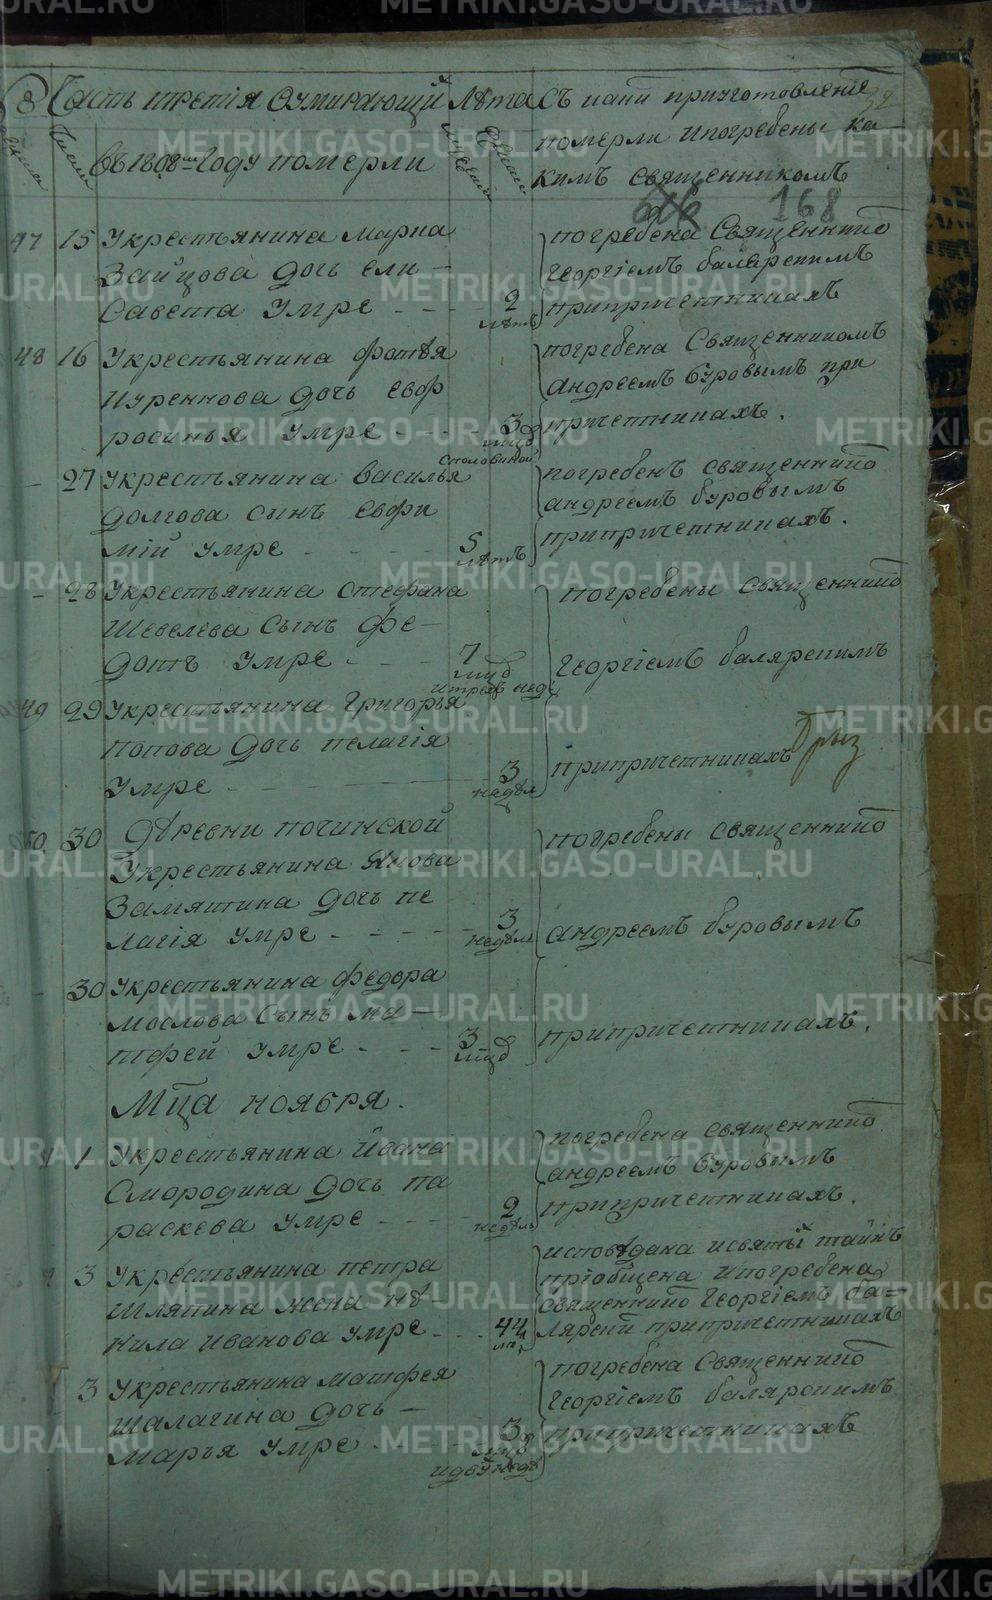 Часть третія оумирающий
Лѣта
Съ како приуготовленіе
въ 1808м Году померли
померли и погребены ка
кимъ священникомъ
168
47 15 Укрестьянина марка
зайцова дочь ели-
савета умре 2 лѣтъ
погребена Священнико
георгіемъ балярскимъ
припричетникахъ
48 16 Укрестьянина фотѣя
куренкова дочь евф
росинья умре 3 мцд
с половиной
погребена Священникомъ
андреемъ буровымъ при
причетникахъ.
27 Укрестьянина василья
долгова сынъ евфи
мій умре 5 лѣтъ
погребенъ священнико
андреемъ буровымъ
припричетникахъ.
28 Укрестьянина стефана
Шевелева сынъ фе-
дотъ умре 7 мцд
и трехъ недѣ
погребены священнико
георгіемъ балярскимъ
49 29 Укрестьянина григорья
попова дочь пелагія
умре 3 недѣл
припричетникахъ
50 30 дѣревни починской
Укрестьянина якова
Замятина дочь пе
лагія умре 3 недѣль
погребены священнико
андреемъ буровымъ
30 Укрестьянина федора
мослова сынъ ма-
тфей умре 3 мцд
припричетникахъ.
Мца ноября.
1 Укрестьянина Ивана
Смородина дочь па
раскева умре 2 недѣль
погребена священнико
андреемъ буровымъ
припричетникахъ.
3 Укрестьянина петра
Шляпина жена не-
нила иванова умре 44
исповѣдана и святый таинъ
пріобщена и погребена
священнико георгіемъ ба=
лярски припричетникахъ
3 Укрестьянина матфея
шалагина дочь -
марья умре 3 мцд
и двѣ недѣ
погребена Священнико
георгіемъ баляронимъ
припричетникахъ
METRIKI.GASO-URAL.RU